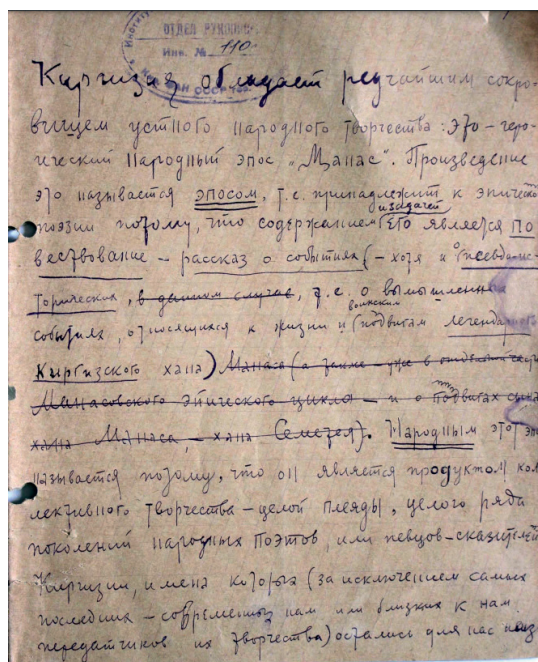 ОТДЕЛ РУКОПИС
Инв. № 110
Киргизия обладает редчайшим сокро-
вищем устного народного творчества: это – геро-
ический народный эпос „Манас". Произведение
это называется эпосом, т.е. принадлежит к эпической
и задачей
поэзии потому, что содержанием его является по
вествование – рассказ о событиях (– хотя и о псевдо-ис-
торических, в данном случае, т.е. о вымышленных
воинским
событиях, относящихся к жизни и подвигам легендарного
Киргизского хана) Манаса (а также – уже в
Манасовского эпического цикла – и о подвигах сына
хана Манаса, – хана Семетея). Народным этот эпос
называется потому, что он является продуктом кол
лективного творчества – целой плеяды, целого ряда
поколений народных поэтов, или певцов-сказителей
Киргизии, имена которых (за исключением самых
последних – современных нам или близких к нам
передатчиков их творчества) остались для нас неиз